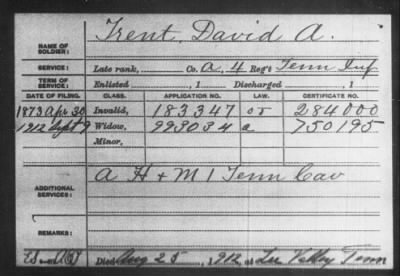 Trent, David A.
NAME OF SOLDIER:
SERVICE: Late rank, Co. A, 4 Reg't Tenn Inf
TERM OF SERVICE: Enlisted , 1 Discharged , 1
DATE OF FILING. CLASS. APPLICATION NO. LAW. CERTIFICATE NO.
1873 Apr 30 Invalid, 183347 284000
1912 Sept 9 Widow, 995034 a 750195
Minor,
ADDITIONAL SERVICES: A H + M 1 Tenn Cav
REMARKS:
Died Aug 25, 1912, at Lee Valley Tenn